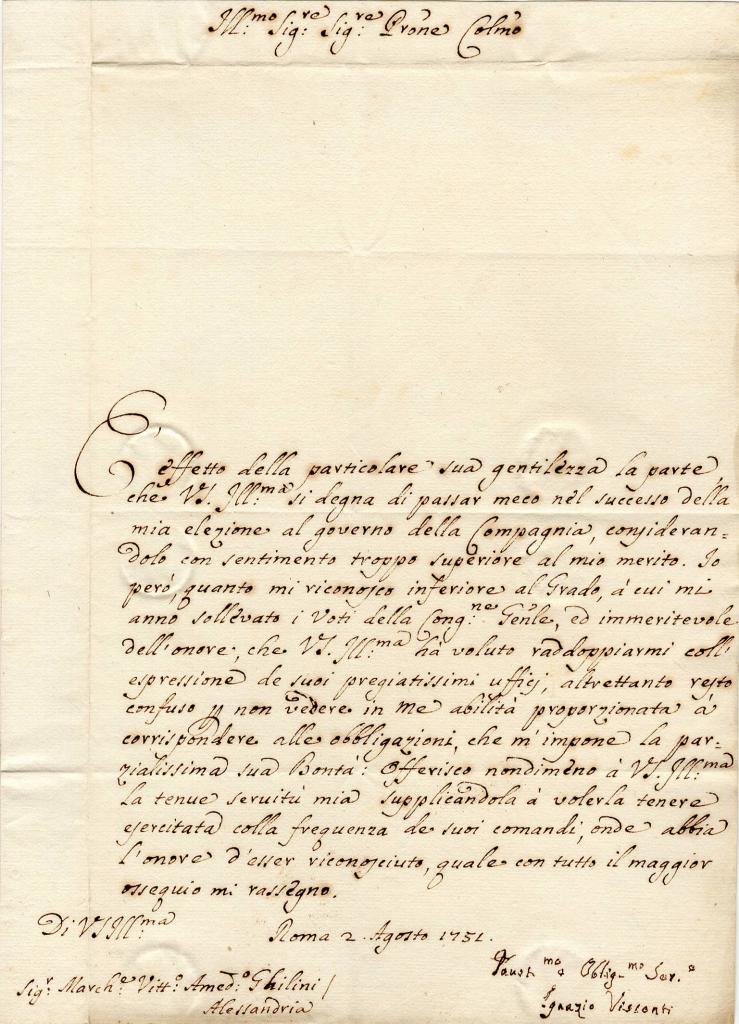 Ill:mo Sig:re Sig:re Prone Colmo
E' effetto della particolare sua gentilezza la parte,
che VS. Ill:ma si degna di passar meco nel successo della
mia elezione al governo della Compagnia, consideran=
dolo con sentimento troppo superiore al mio merito. Io
però, quanto mi riconosco inferiore al Grado, à cui mi
anno sollevato i Voti della Cong:ne Genle, ed immeritevole
dell'onore, che VS. Ill:ma hà voluto raddoppiarmi coll'
espressione de suoi pregiatissimi ufficj, altrettanto resto
confuso p non vedere in me abilità proporzionata à
corrispondere alle obbligazioni, che m'impone la par=
zialissima sua Bontà: Offerisco nondimeno à VS. Ill:ma
la tenue servitù mia supplicandola à volerla tenere
esercitata colla frequenza de suoi comandi, onde abbia
l'onore d'esser riconosciuto, quale con tutto il maggior
ossequio mi rassegno.
Di VS Ill:ma
Roma 2. Agosto 1751.
Sig:r March:e Vitt:o Amed:o Ghilini /
Alessandria
Oblig:mo Ser:e
Ignazio Visconti